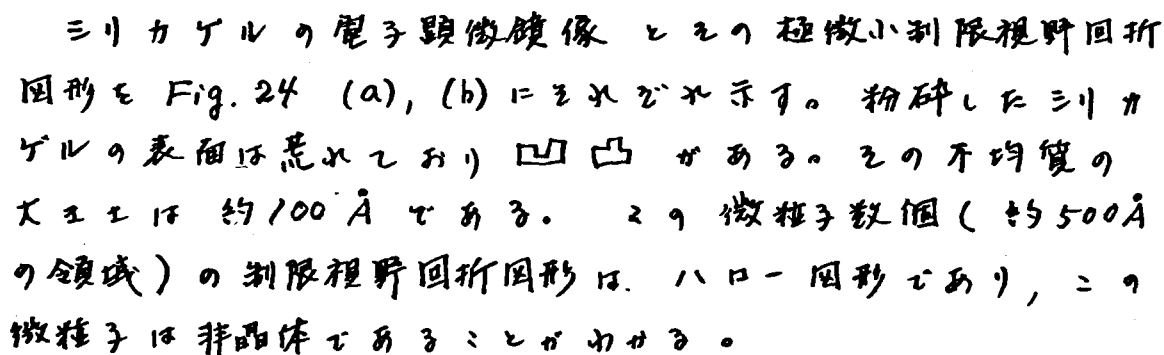 シリカゲルの電子顕微鏡像とその極微小制限視野回折
図形を Fig. 24 (a), (b) にそれぞれ示す。粉砕したシリカ
ゲルの表面は荒れており凹凸がある。その不均質の
大きさは約100Åである。この微粒子数個(約500Å
の領域)の制限視野回折図形は、ハロー図形であり,この
微粒子は非晶体であることがわかる。